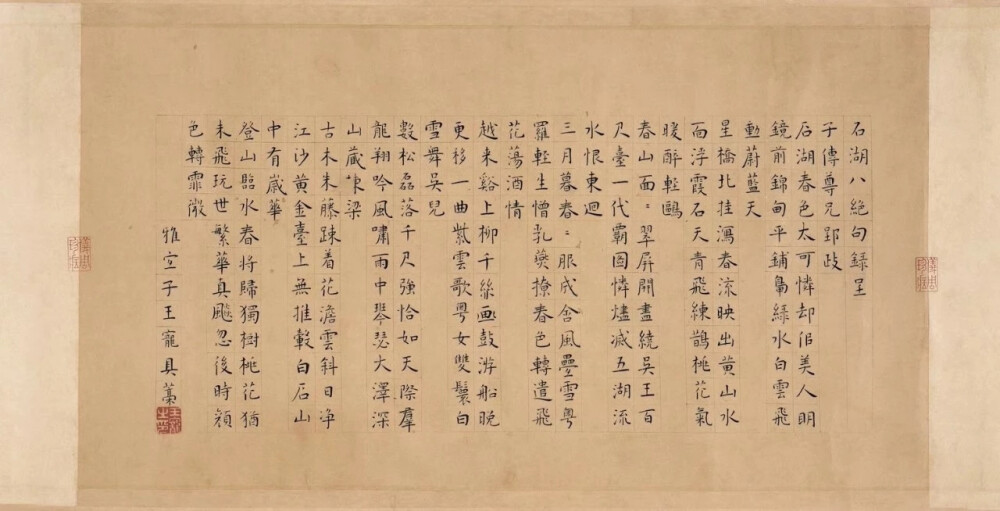 石湖八絶句録呈
子傳尊兄郢政
石湖春色太可憐却佀美人明
鏡前錦甸平鋪鳧緑水白雲飛
動蔚藍天
星橋北挂瀉春流映出黄山水
面浮霞石天青飛練鵲桃花氣
暖醉輕鷗
春山面〻翠屏開盡繞吳王百
尺臺一代霸圖憐燼滅五湖流
水恨東迴
三月暮春〻服成含風疊雪粤
羅輕生憎乳燕撩春色轉遣飛
花蕩酒情
越来谿上柳千絲画鼓游船晚
更移一曲紫雲歌粤女雙鬟白
雪舞吳兒
數松磊落千尺強恰如天際羣
龍翔吟風嘯雨中琴瑟大澤深
山嵗棟梁
古木朱藤踈着花澹雲斜日净
江沙黄金臺上無推轂白石山
中有嵗華
登山臨水春將歸獨樹桃花猶
未飛玩世繁華真飈忽後時顔
色轉霏微
雅宜子王寵具藁